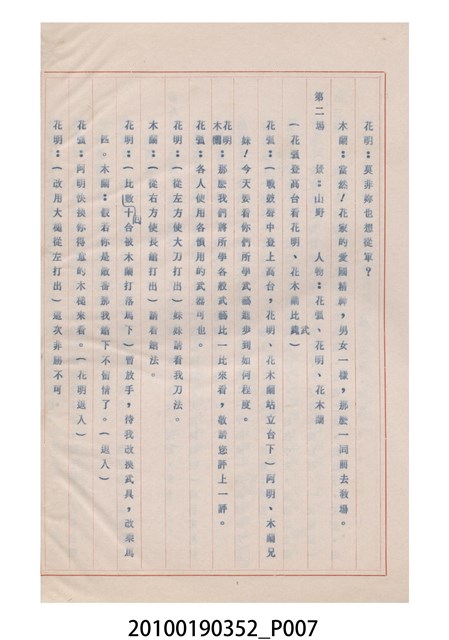 花明：莫非妳也想從軍？
木蘭：當然！花家的愛國精神，男女一樣，那麼一同前去教場。
第二場　景：山野　人物：花弧、花明、花木蘭
（花弧登高台看花明、花木蘭比武）
花弧：（戰鼓聲中登上高台，花明、花木蘭站立台下）阿明、木蘭兄
妹！今天要看你們所學武藝進步到如何程度。
花明木蘭：那麼我們將所學各般武藝比一比來看，敬請您評上一評。
花弧：各人使用各慣用的武器可也。
花明：（從左方使大刀打出）妹妹請看我刀法。
木蘭：（從右方使長鎗打出）請看鎗法。
花明：（比數十合被木蘭打落馬下）暫放手，待我改換武具，改乘馬
匹。木蘭：假若你是敵番那我鎗下不留情了。（退入）
花弧：阿明快換你得意的木槌來看。（花明退入）
花明：（改用大槌從左打出）這次非勝不可。
20100190352_P007